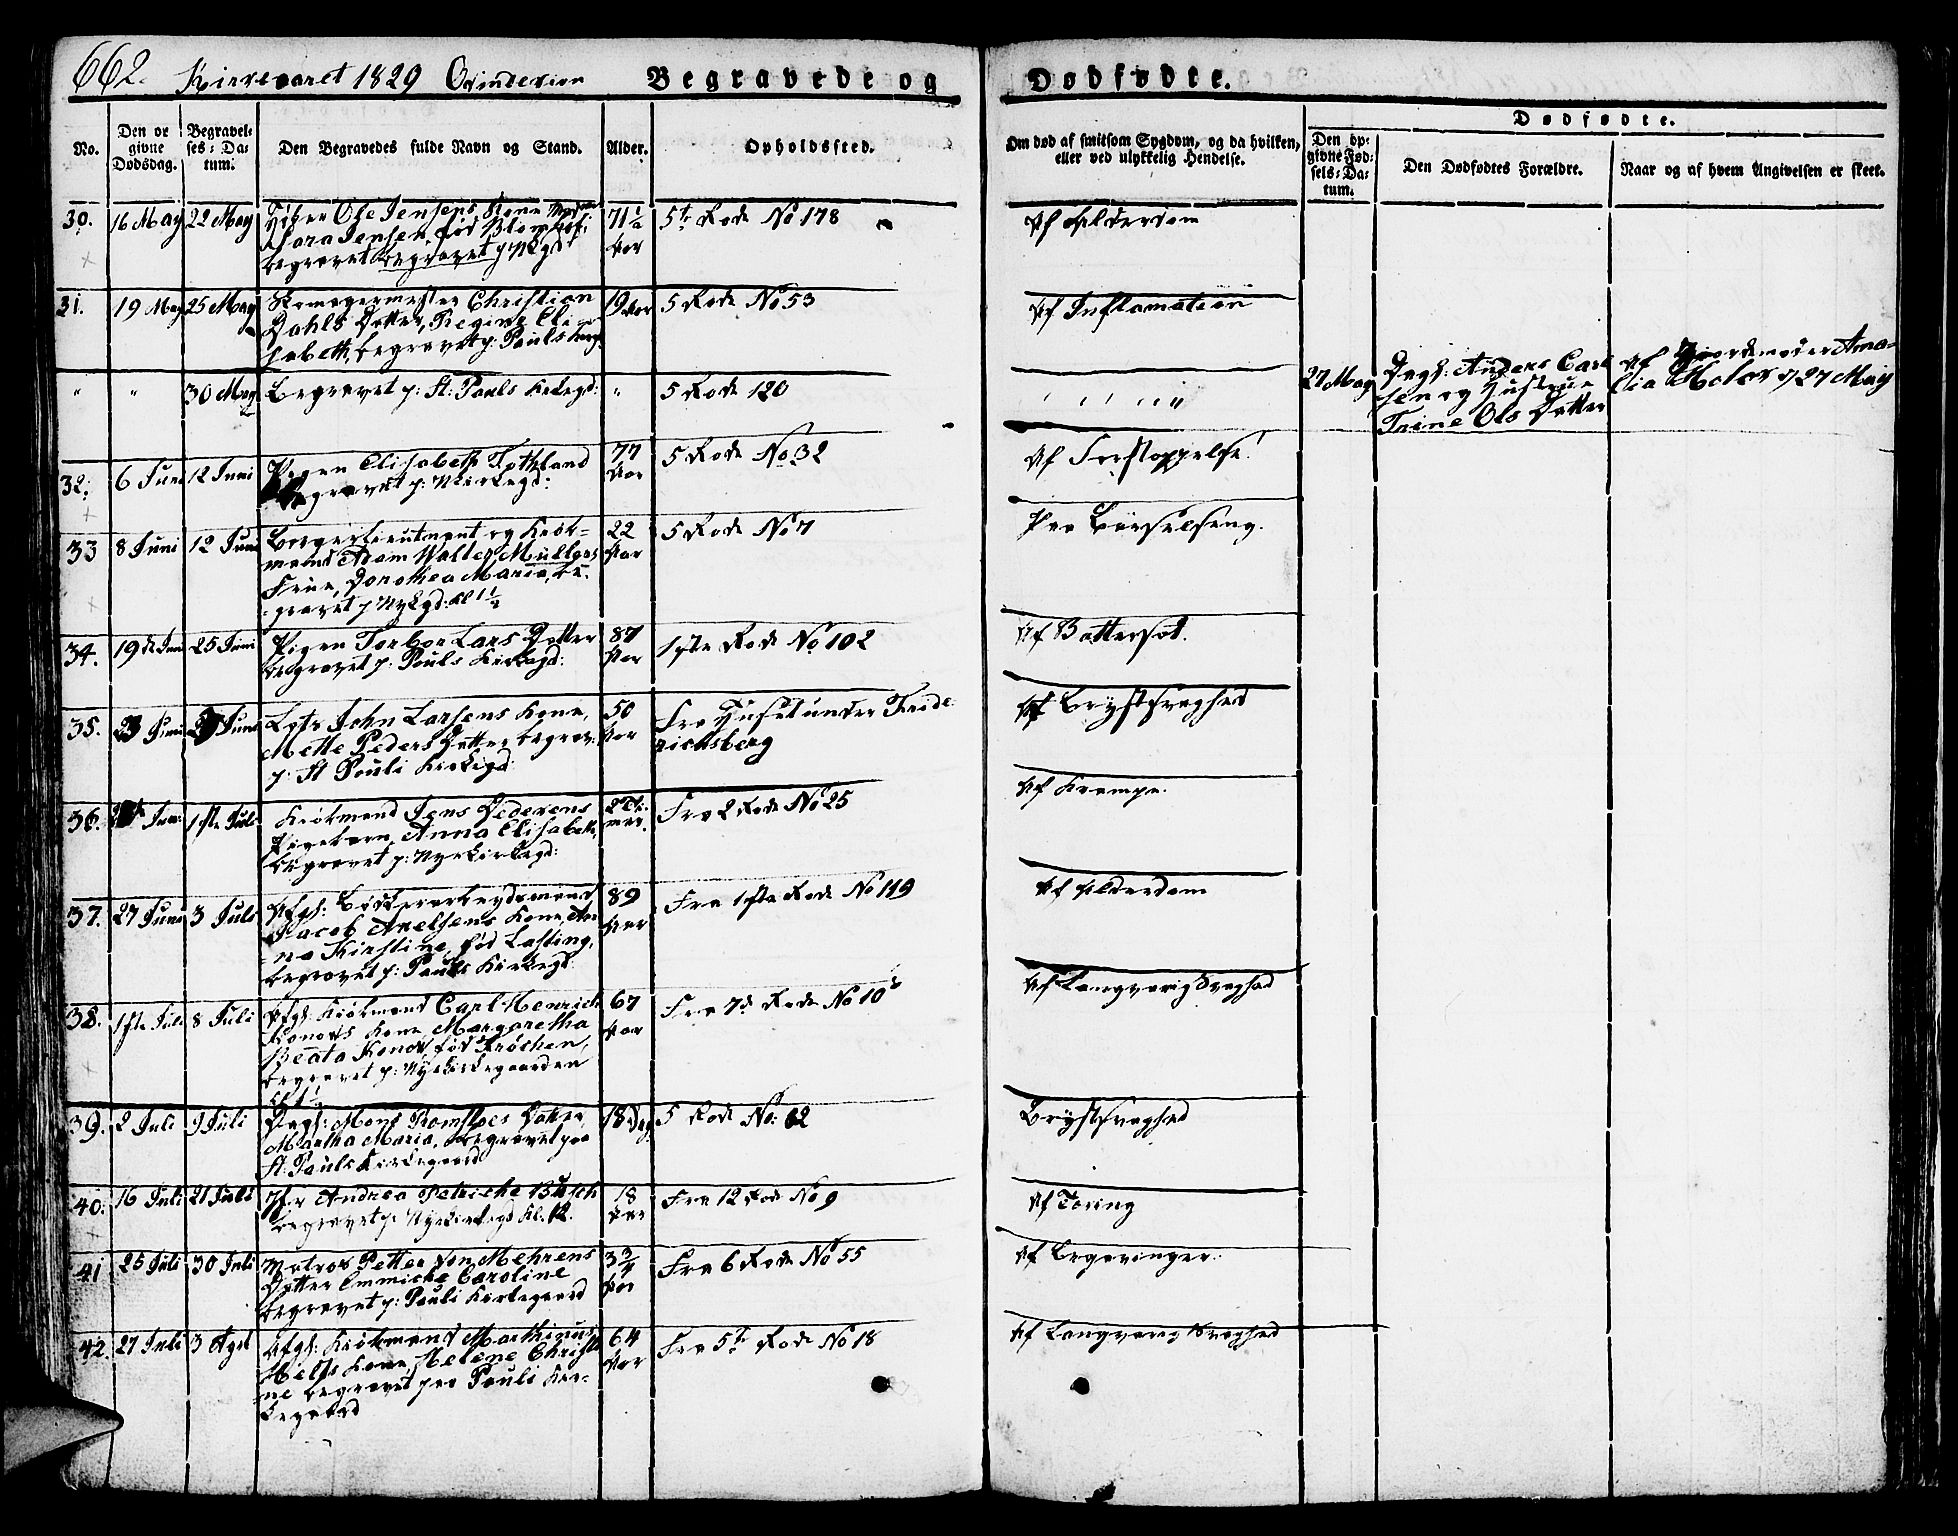 662. Kirkeaaret 1829 Qvindekiøn Begravede og Dødfødte.
No. Den opgivne Dødsdag. Begravelses-Datum. Den Begravedes fulde Navn og Stand. Alder. Opholdssted. Om død af smitsom Sygdom, og da hvilken, eller ved ulykkelig Hendelse.
Dødfødte.
Den opgivne Fødsels-Datum. Den Dødfødtes Forældre. Naar og af hvem Angivelsen er skeet.
30. 16 May 22 May
Ole Jensens Kone
Sara Jensen, fød
begravet begravet p Nykgd
71½ Aar
5te Rode No 178
Af Alderdom
31. 19 May 25 May
Skomagermester Christian
Dahls Datter, Regine Eli-
sabeth, begravet p: Pauls
19 Aar
5 Rode No 53
Af Inflamation
" " 30 May
Begravet p: St: Pauls Kirkegd:
"
5 Rode 120
27 May
Dagk: Anders Carl
sen og Hustrue
Trine Ols Datter
Af Jordemoder Ama-
lia Holck p 27 May
32. 6 Juni 12 Juni
Pigen Elisabeth
Begravet p: Nkirkegd:
77 Aar
5 Rode No 32
Af Forstoppelse
33 8 Juni 12 Juni
Borgerlieutnant og Kiøb-
mand Adam Walter Mullers
Frue, Dorothea Maria, be-
gravet p Nykgd: Kl 1½
22 Aar
5 Rode No 7
Paa Barselseng.
34. 19de Juni 25 Juni
Pigen Torbor Lars Datter
begravet p: Pauls Kirkegd:
87 Aar
1ste Rode No 102
Af Vattersot.
35. Juni Juni
John Larsens Kone,
Mette Peders Datter begrav:
p: St Pauli Kirkegd:
50 Aar
Fra Huset under Frede-
richsberg
Af Brystsvaghed
36. Juni 1ste Juli
Kiøbmand Jens Pedersens
Pigebarn, Anna Elisabeth,
begravet p: Nyekirkegd:
2 Ti-
mer.
Fra 2 Rode No 25
Af Krampe.
37. 27 Juni 3 Juli
Afgk:
Jacob Axelsens Kone, An-
na Kirstine, fød Lasting,
begravet p: Pauls Kirkegd
89 Aar
Fra 1ste Rode No 119
Af Alderdom
38. 1ste Juli 8 Juli
Afgk: Kiøbmand Carl Henrich
Konows Kone, Margaretha
Beata Konow, fød Frøchen,
begravet p: Nyekirkegaarden
Kl 1½
67 Aar
Fra 7de Rode No 10
Af Langvarig Svaghed
39. 2 Juli 9 Juli
Dagk: Mons Romsloes Datter,
Martha Maria, begravet paa
St: Pauls Kirkegaard
18 Dag
5 Rode No: 62
Brystsvaghed
40. 16 Juli 21 Juli
Jfr Andrea Petriche Busch
begravet p: Nyekirkegd Kl. 12.
18 Aar
Fra 12 Rode No 9
Af Tæring
41 25 Juli 30 Juli
Matros Petter von Mehrens
Datter Emmiche Caroline
begravet p: Pauli Kirkegaard
3¾ Aar
Fra 6 Rode No 55
Af
42. 27 Juli 3 Agst
Afgk: Kiøbmand Marthinus
Kone, Helene Christi-
ne begravet paa Pauli Kir-
kegaard
64 Aar
Fra 5te Rode No 18
Af Langvarig Svaghed